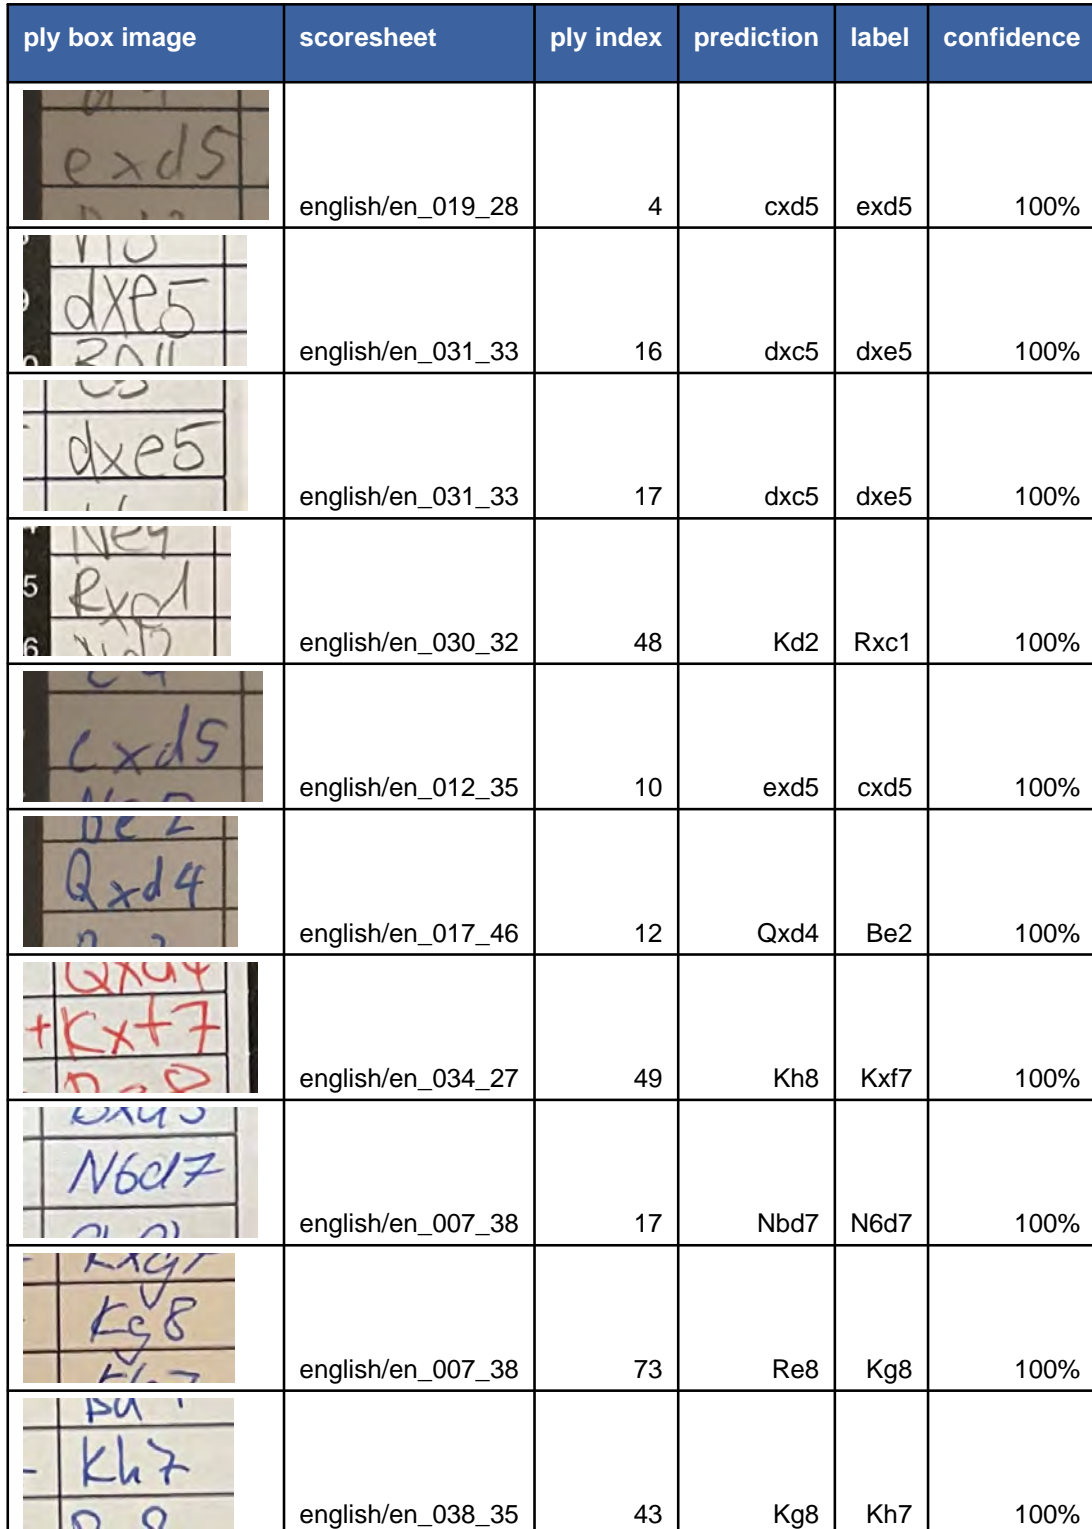 ply box image scoresheet ply index prediction label confidence
exd5
english/en_019_28 4 cxd5 exd5 100%
dxe5
english/en_031_33 16 dxc5 dxe5 100%
dxe5
english/en_031_33 17 dxc5 dxe5 100%
Ne4
5 Rxc1
6
english/en_030_32 48 Kd2 Rxc1 100%
cxd5
english/en_012_35 10 exd5 cxd5 100%
Be2
Qxd4
english/en_017_46 12 Qxd4 Be2 100%
Qxd4
+ Kxf7
english/en_034_27 49 Kh8 Kxf7 100%
N6d7
english/en_007_38 17 Nbd7 N6d7 100%
Kxg7
Kg8
Kh7
english/en_007_38 73 Re8 Kg8 100%
Kh7
english/en_038_35 43 Kg8 Kh7 100%